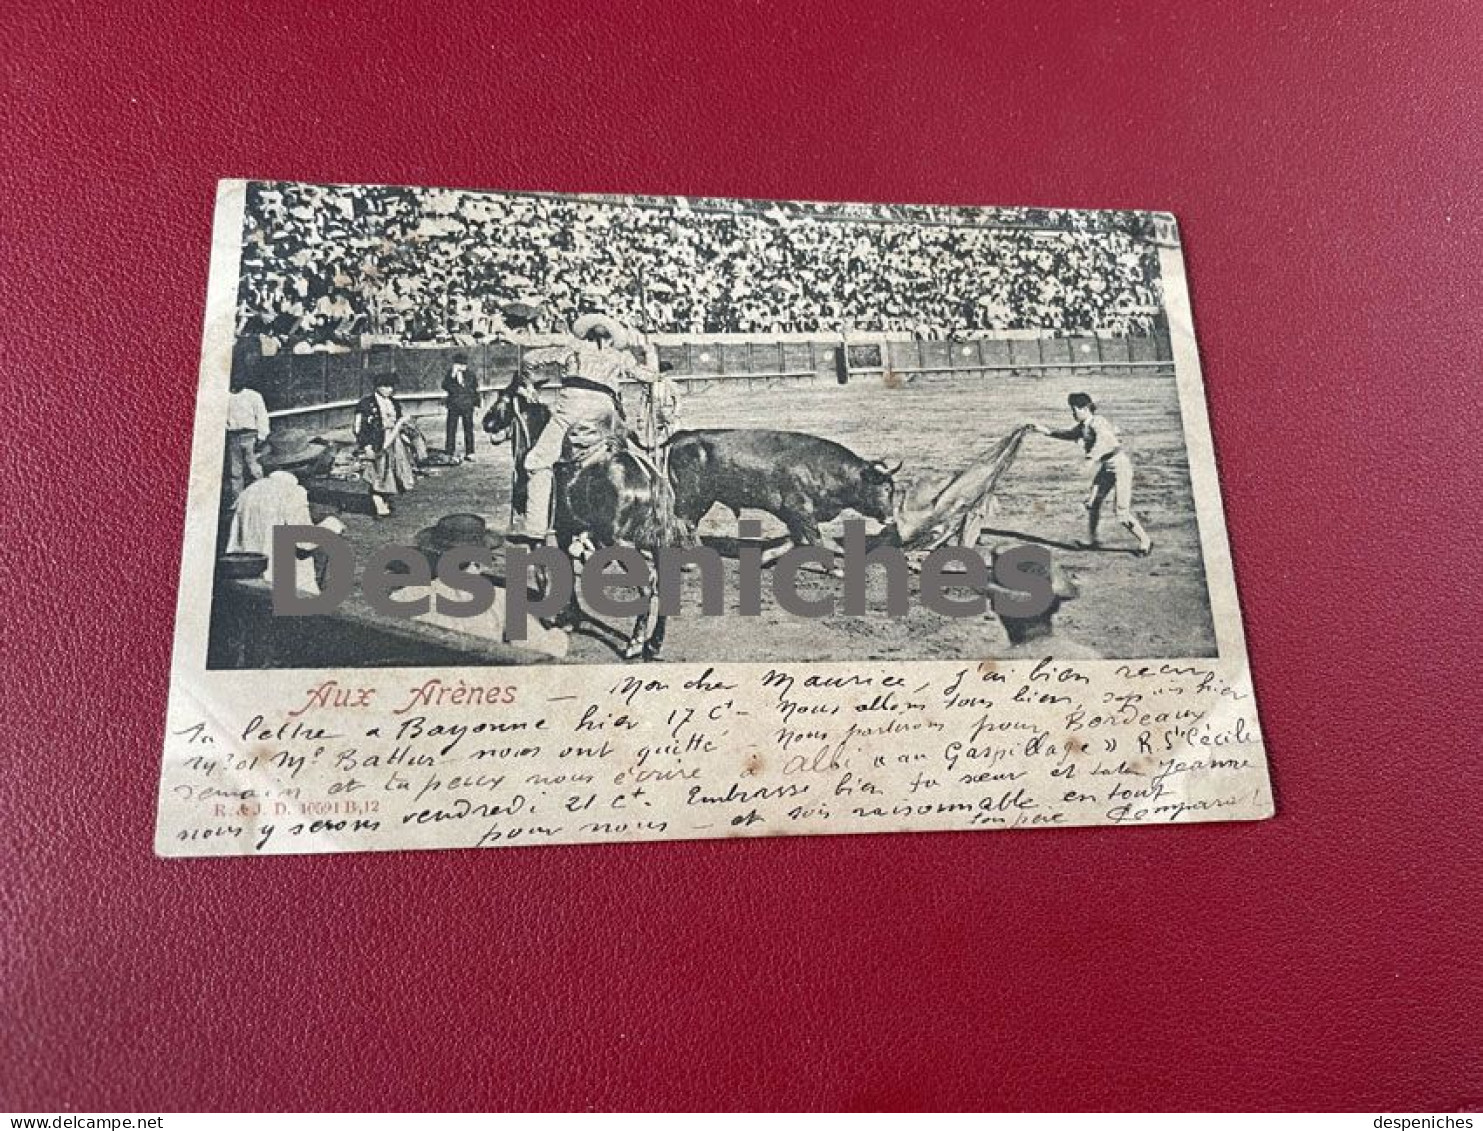 Despeniches
Aux Arènes — Mon cher Maurice, j'ai bien recu
ta lettre a Bayonne hier 17 Ct - Nous allons tous bien, depuis hier
Mr et Me Battur nous ont quitté - Nous partirons pour Bordeaux
semain et tu peux nous écrire à Albi "au Gaspillage" R Ste Cécile
R. & J. D. 10591 B,12
nous y serons vendredi 21 Ct. Embrasse bien ta sœur et tata Jeanne
pour nous - et sois raisonnable en tout
ton père
delcampe.net
despeniches